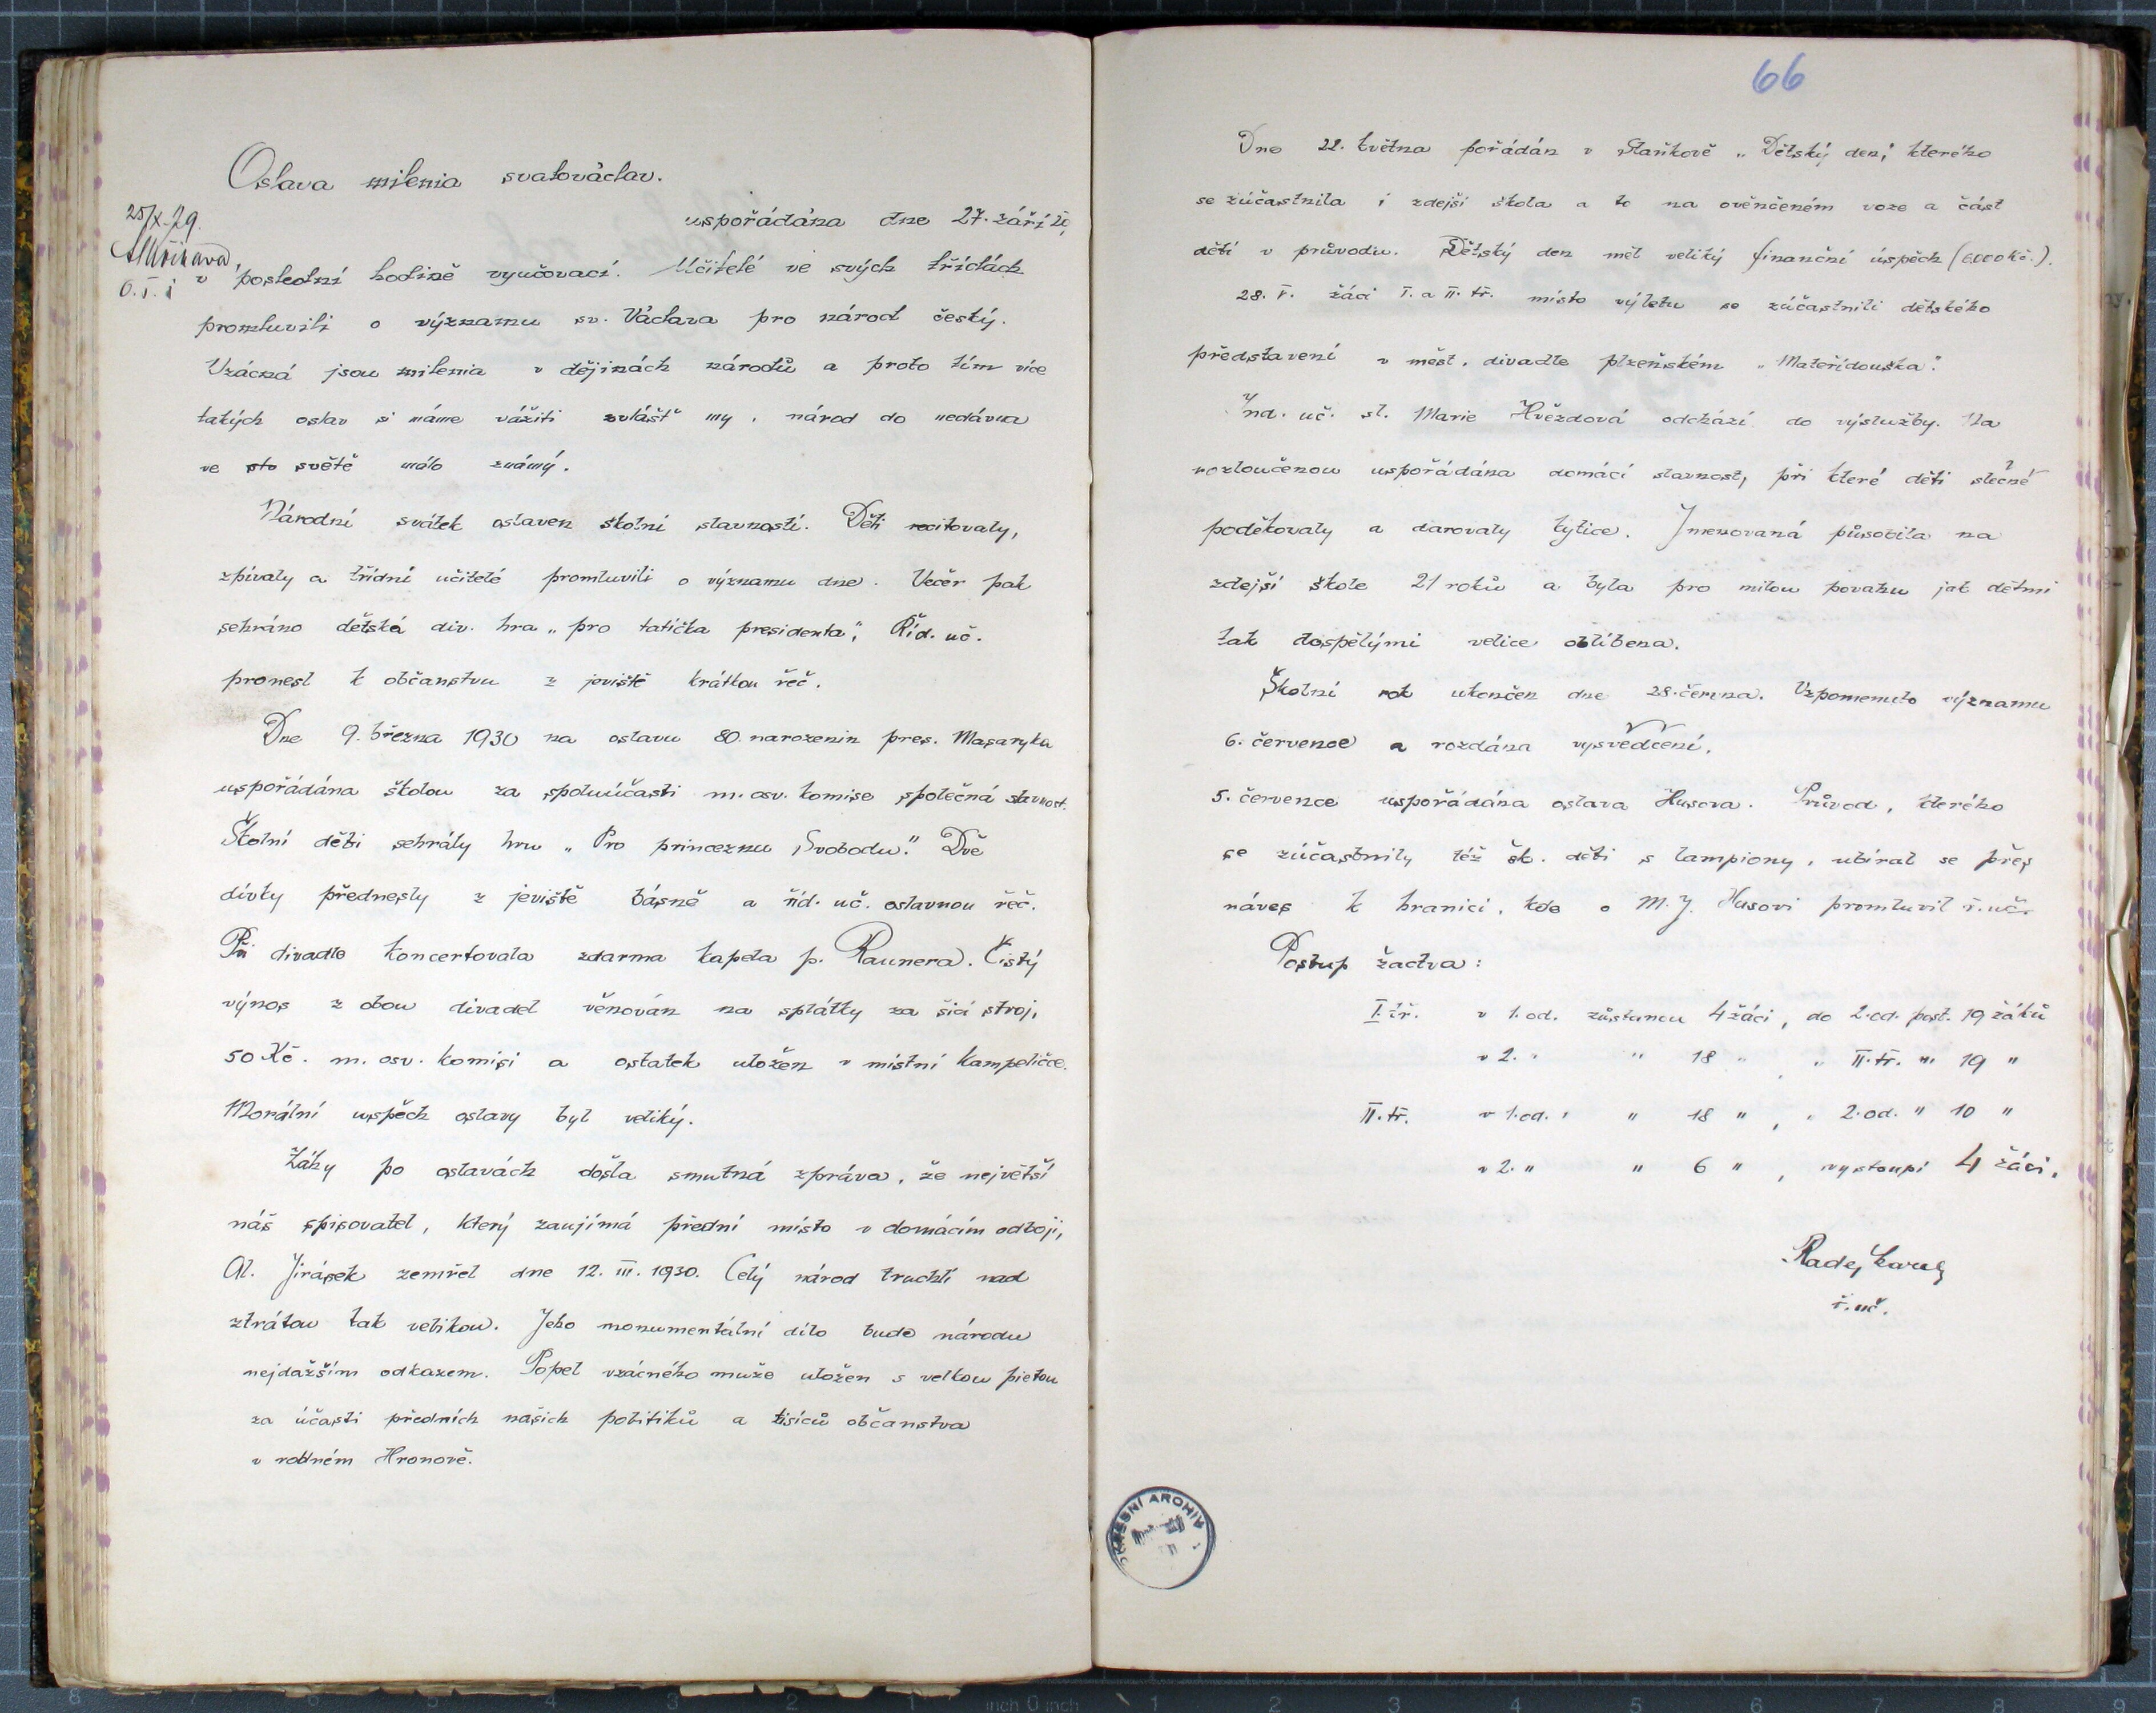 Oslava milenia svatováclav.
25/X.29.
uspořádána dne 27. září
v poslední hodině vyučovací. Učitelé ve svých třídách
promluvili o významu sv. Václava pro národ český.
Vzácná jsou milenia v dějinách národů a proto tím více
takých oslav si máme vážiti zvláště my, národ do nedávna
ve sto světě málo známý.
Národní svátek oslaven školní slavností. Děti recitovaly,
zpívaly a třídní učitelé promluvili o významu dne. Večer pak
sehráno dětská div. hra „pro tatíčka presidenta", Říd. uč.
pronesl k občanstvu z jeviště krátkou řeč.
Dne 9. března 1930 na oslavu 80. narozenin pres. Masaryka
uspořádána školou za spoluúčasti m. osv. komise společná slavnost.
Školní děti sehrály hru „Pro princeznu Svobodu." Dvě
dívky přednesly z jeviště básně a říd. uč. oslavnou řeč.
Při divadle koncertovala zdarma kapela p. Raunera. Čistý
výnos z obou divadel věnován na splátky za šicí stroj,
50 Kč. m. osv. komisi a ostatek uložen v místní Kampeličce.
Morální uspěch oslavy byl veliký.
Záhy po oslavách došla smutná zpráva, že největší
náš spisovatel, který zaujímá přední místo v domácím odboji,
Al. Jirásek zemřel dne 12. III. 1930. Celý národ truchlí nad
ztrátou tak velikou. Jeho monumentální dílo bude národu
nejdažším odkazem. Popel vzácného muže uložen s velkou pietou
za účasti předních našich politiků a tisíců občanstva
v rodném Hronově.
66
Dne 22. května pořádán v Staňkově „Dětský den", kterého
se zúčastnila i zdejší škola a to na ověnčeném voze a část
dětí v průvodu. Dětský den měl veliký finanční úspěch (6.000 Kč.).
28. V. žáci I. a II. tř. místo výletu se zúčastnili dětského
představení v měst. divadle plzeňském „Mateřídouška".
Ind. uč. sl. Marie Hvězdová odchází do výslužby. Na
rozloučenou uspořádána domácí slavnost, při které děti slečně
poděkovaly a darovaly kytice. Jmenovaná působila na
zdejší škole 21 roků a byla pro milou povahu jak dětmi
tak dospělými velice oblíbena.
Školní rok ukončen dne 28. června. Vzpomenuto významu
6. července a rozdána vysvědčení.
5. července uspořádána oslava Husova. Průvod, kterého
se zúčastnily též šk. děti s lampiony, ubíral se přes
náves k hranici, kde o M. J. Husovi promluvil ř. uč.
Postup žactva:
I. tř. v 1. od. zůstanou 4 žáci, do 2. od. post. 19 žáků
v 2. " " 18 " , " II. tř. " 19 "
II. tř. v 1. od. " " 18 " , " 2. od. " 10 "
v 2. " " 6 " , vystoupí 4 žáci.
Radej Karel
ř. uč.
OKRESNÍ ARCHIV